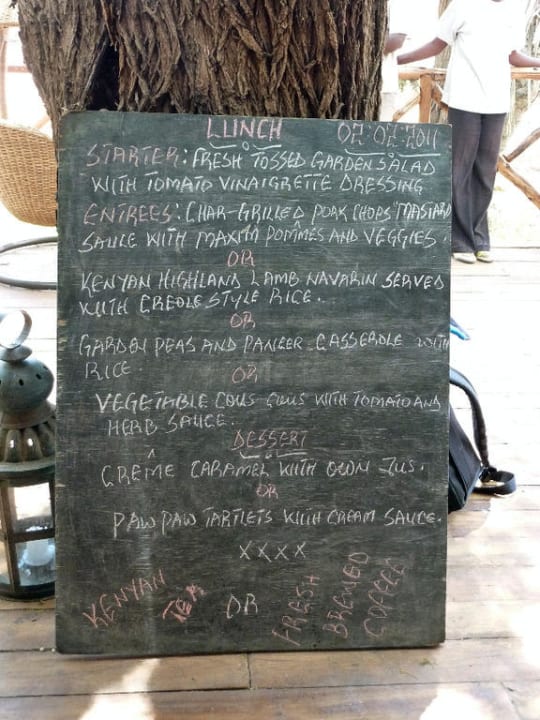 LUNCH 02·02·2011
STARTER: FRESH TOSSED GARDEN SALAD
WITH TOMATO VINAIGRETTE DRESSING
ENTREES: CHAR-GRILLED PORK CHOPS "MASTARD
SAUCE WITH MAXIM POMMES AND VEGGIES.
OR
KENYAN HIGHLAND LAMB NAVARIN SERVED
WITH CREOLE STYLE RICE.
OR
GARDEN PEAS AND PANEER CASSEROLE WITH
RICE.
OR
VEGETABLE COUS COUS WITH TOMATO AND
HERB SAUCE.
DESSERT
CRÊME CARAMEL WITH OWN JUS.
OR
PAW PAW TARTLETS WITH CREAM SAUCE.
XXXX
KENYAN TEA OR FRESH BREWED COFFEE